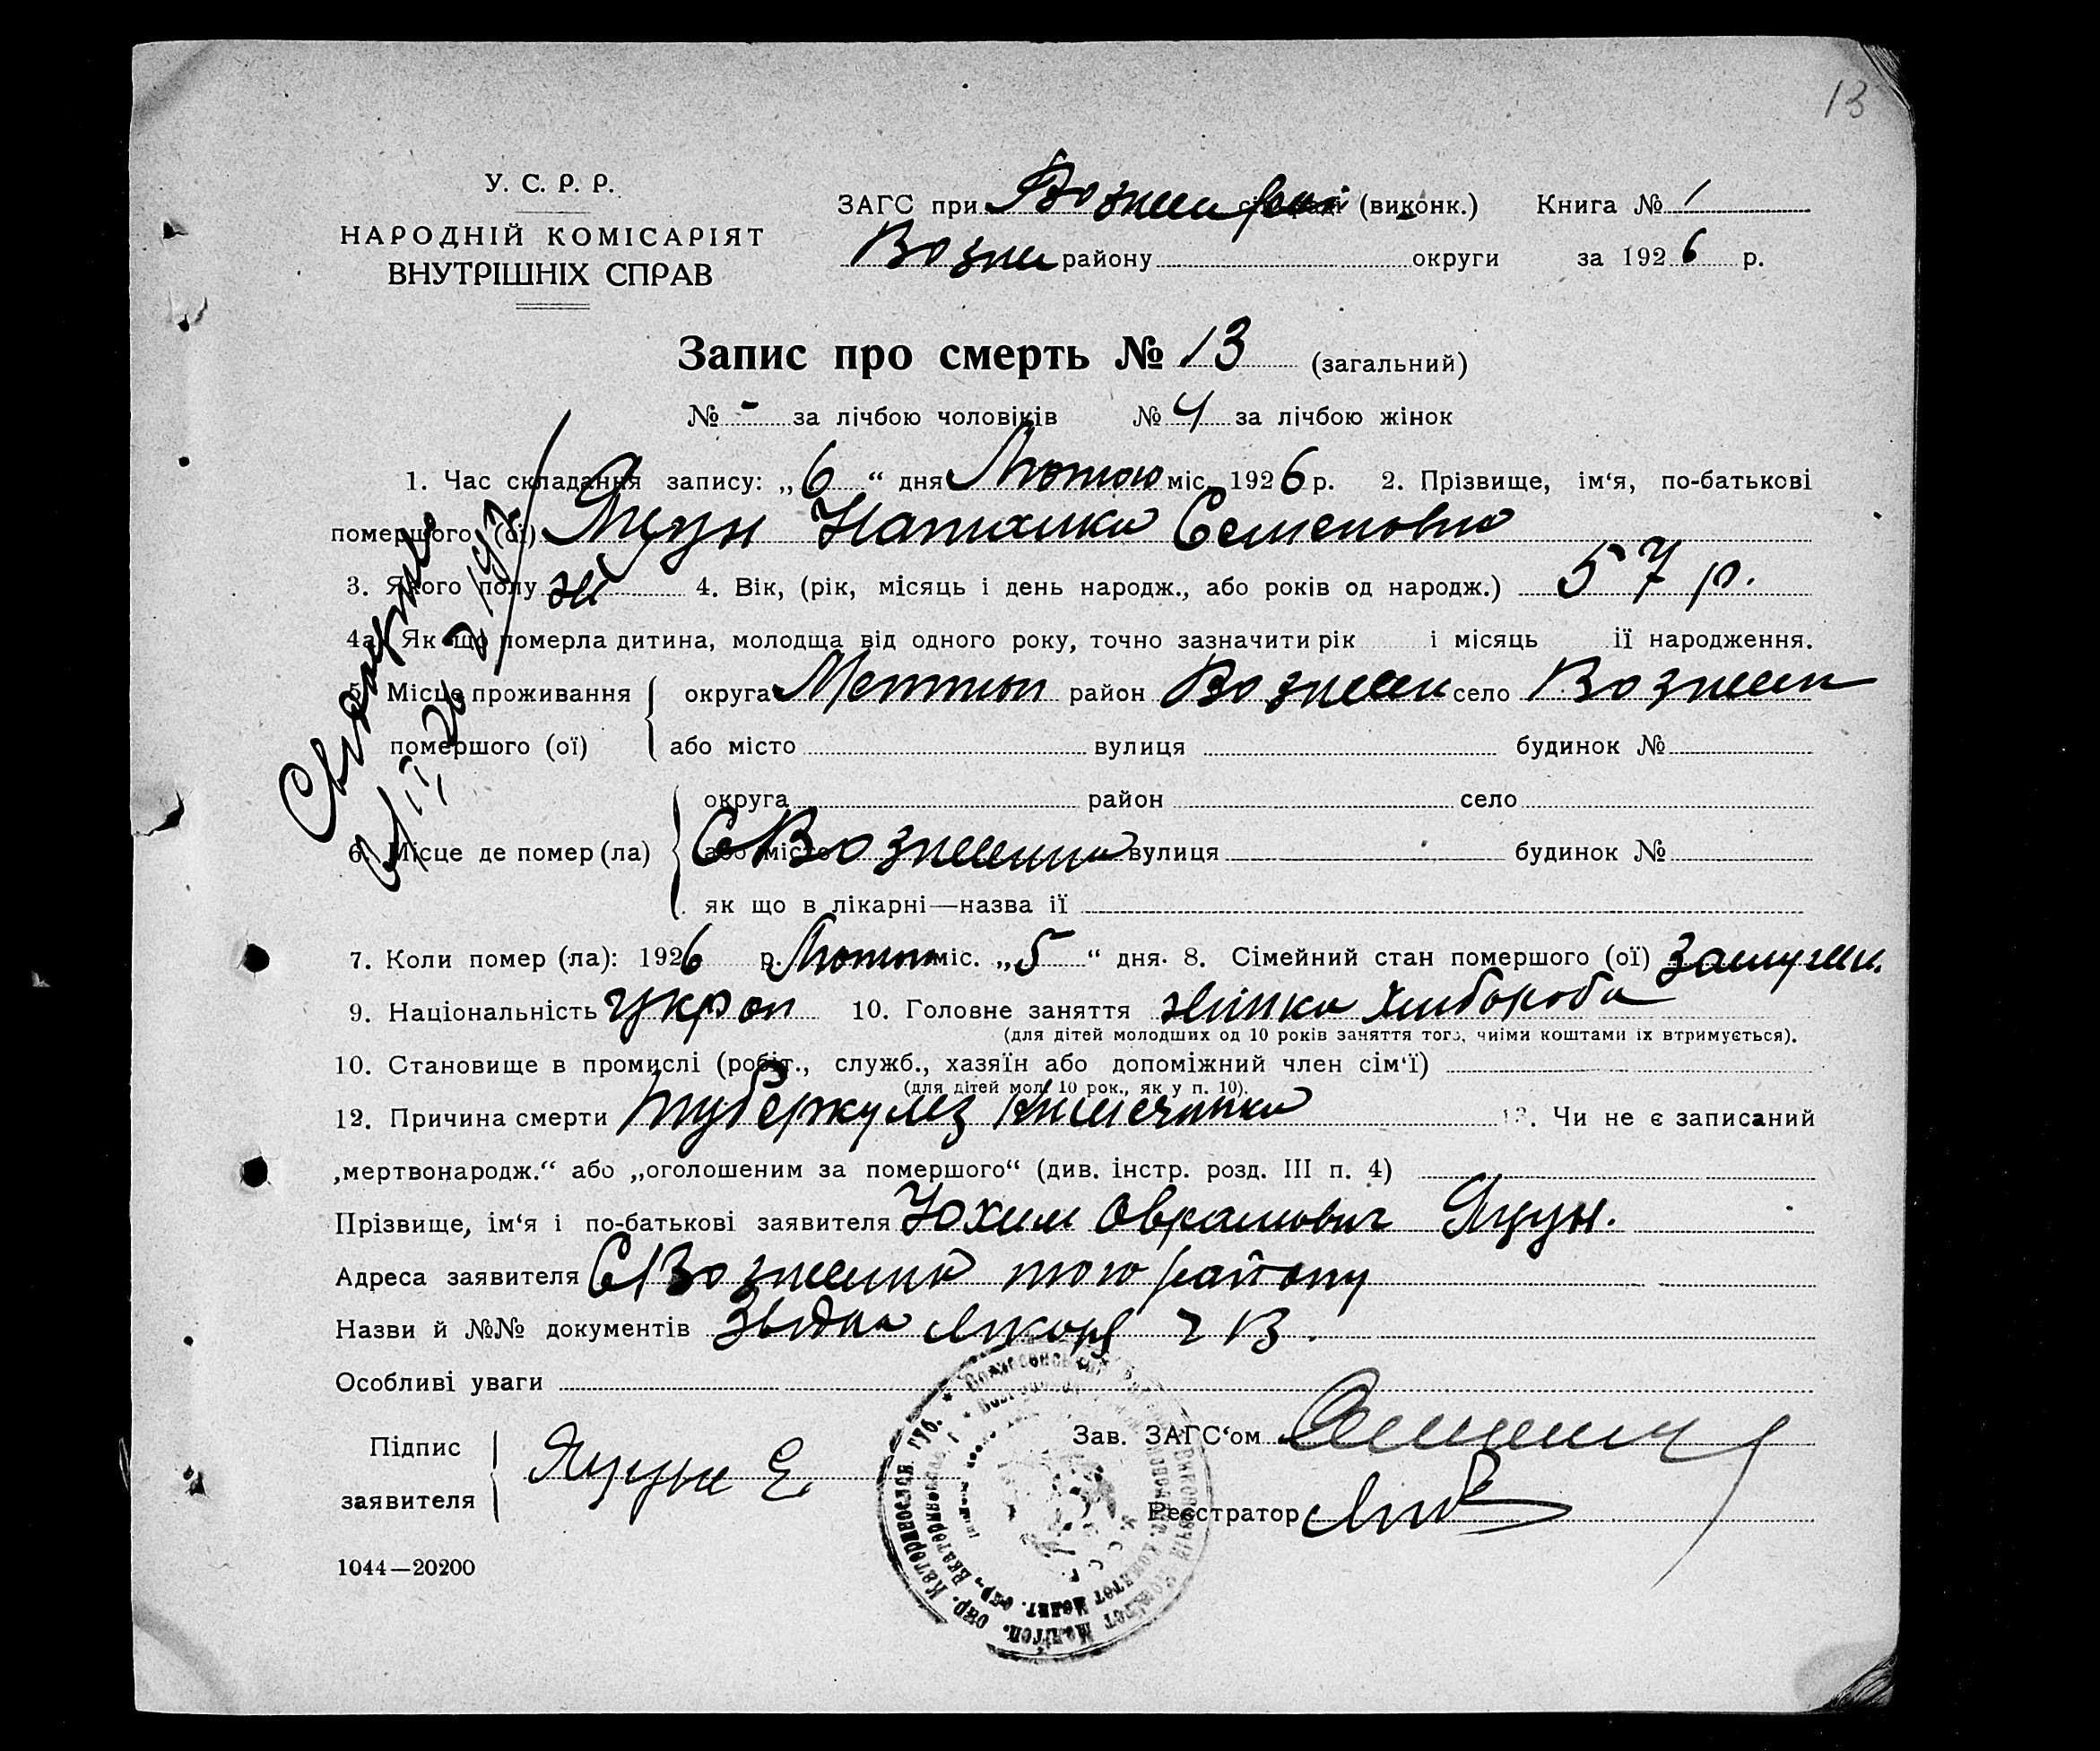 13
У. С. Р. Р.
НАРОДНІЙ КОМІСАРІЯТ
ВНУТРІШНІХ СПРАВ
ЗАГС при Вознен (виконк.) Книга № 1
Возне району округи за 1926 р.
Запис про смерть № 13 (загальний)
№ - за лічбою чоловіків № 4 за лічбою жінок
1. Час складання запису: „6“ дня Лютого міс. 1926 р. 2. Прізвище, ім‘я, по-батькові
помершого (ої) Яцун Семеновна
3. Якого полу ж 4. Вік, (рік, місяць і день народж., або років од народж.) 57 р.
4а. Як що померла дитина, молодща від одного року, точно зазначити рік і місяць її народження.
5. Місце проживання помершого (ої) округа район Вознесен село Вознесен
або місто вулиця будинок №
6. Місце де помер (ла) округа район село
або місто С Вознесенка вулиця будинок №
як що в лікарні—назва її
7. Коли помер (ла): 1926 р. Лютого міс. „5“ дня. 8. Сімейний стан помершого (ої) Замужн.
9. Національність Україн 10. Головне заняття жінка хлібороба
(для дітей молодших од 10 років заняття того, чиїми коштами їх втримується).
10. Становище в промислі (робіт., служб., хазяїн або допоміжний член сім‘ї)
(для дітей мол. 10 рок., як у п. 10).
12. Причина смерти туберкулез кишечника 13. Чи не є записаний
„мертвонародж.“ або „оголошеним за помершого“ (див. інстр. розд. III п. 4)
Прізвище, ім‘я і по-батькові заявителя Юхим Аврамович Яцун.
Адреса заявителя С Вознесенка того району
Назви й №№ документів
Особливі уваги
Підпис заявителя Яцун Е.
Зав. ЗАГС‘ом
Реєстратор
1044—20200